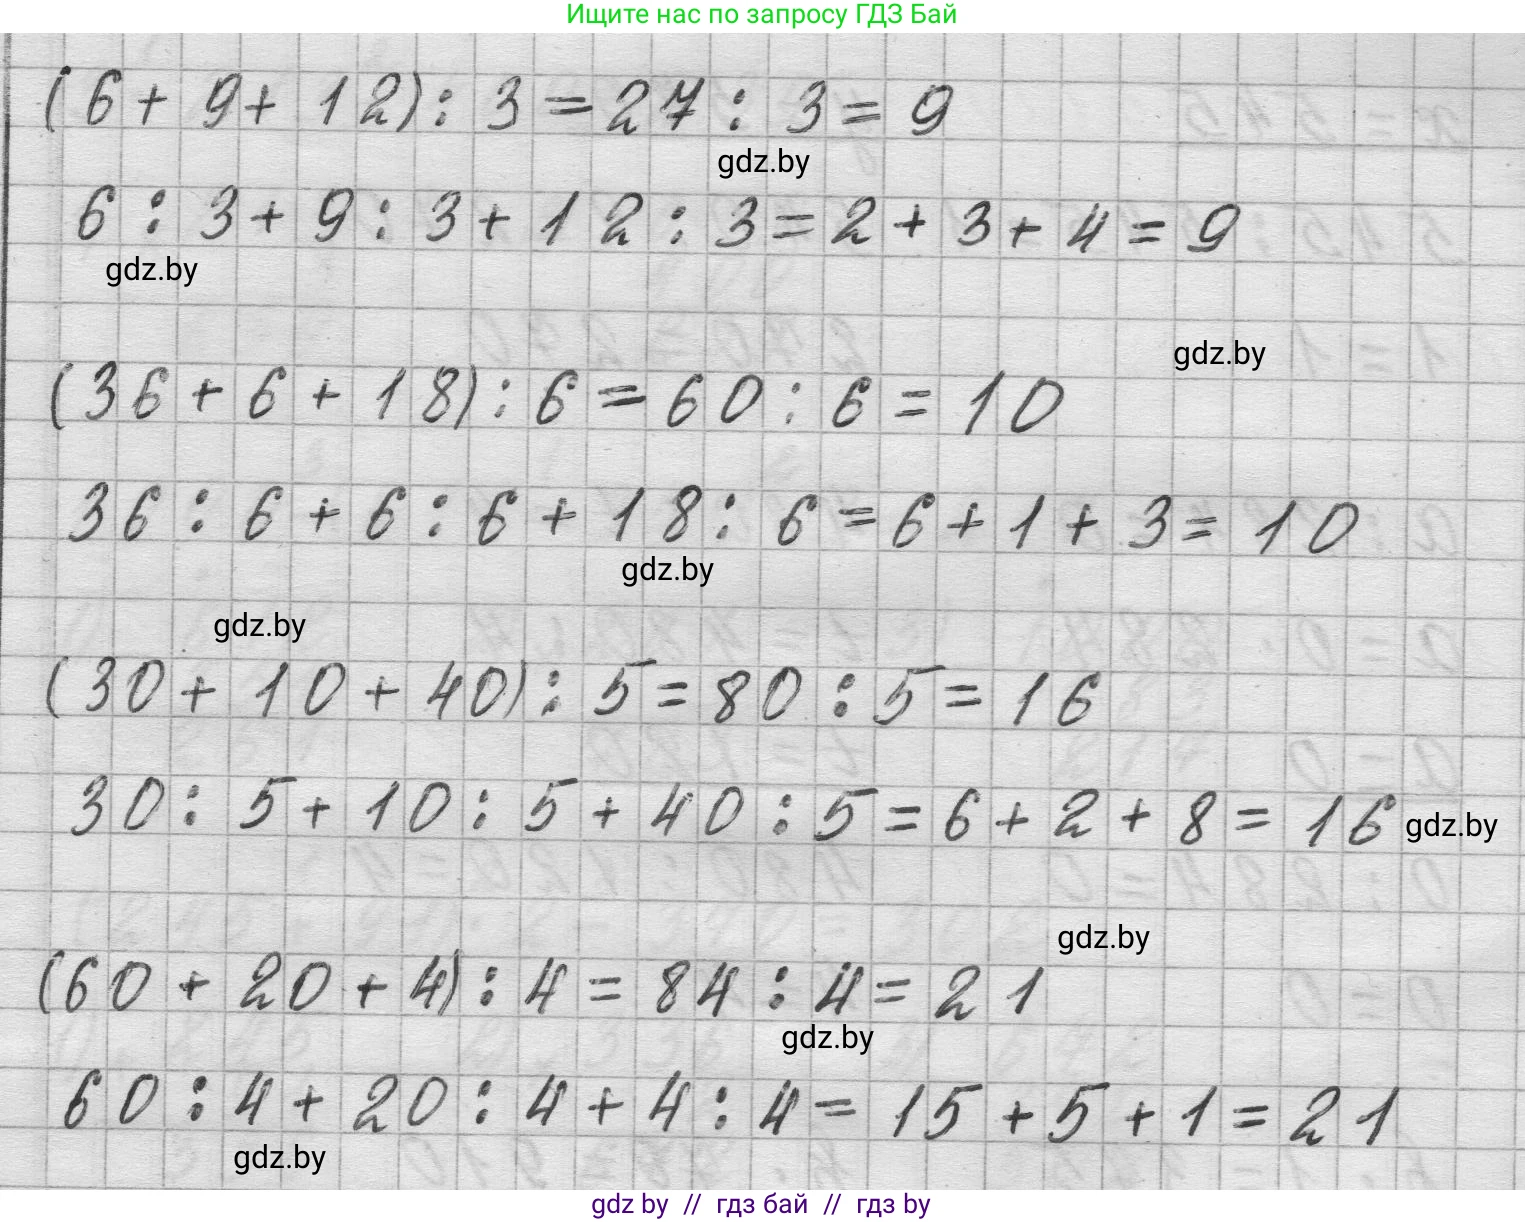 Ищите нас по запросу ГДЗ Бай
(6+9+12):3=27:3=9
gdz.by
6:3+9:3+12:3=2+3+4=9
gdz.by
gdz.by
(36+6+18):6=60:6=10
36:6+6:6+18:6=6+1+3=10
gdz.by
gdz.by
(30+10+40):5=80:5=16
30:5+10:5+40:5=6+2+8=16
gdz.by
gdz.by
(60+20+4):4=84:4=21
gdz.by
60:4+20:4+4:4=15+5+1=21
gdz.by
gdz by // гдз бай // гдз by